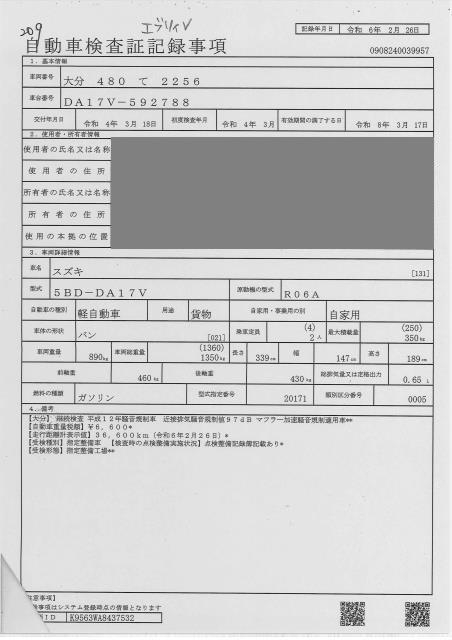 20.9 エブリィV
記録年月日 令和 6年 2月 26日
自動車検査証記録事項
0908240039957
1. 基本情報
車両番号 大分 480 て 2256
車台番号 DA17V-592788
交付年月日 令和 4年 3月 18日 初度検査年月 令和 4年 3月 有効期間の満了する日 令和 8年 3月 17日
2. 使用者・所有者情報
使用者の氏名又は名称
使用者の住所
所有者の氏名又は名称
所有者の住所
使用の本拠の位置
3. 車両詳細情報
車名 スズキ [131]
型式 5BD-DA17V 原動機の型式 R06A
自動車の種別 軽自動車 用途 貨物 自家用・事業用の別 自家用
車体の形状 バン [021] 乗車定員 (4) 2人 最大積載量 (250) 350kg
車両重量 890kg 車両総重量 (1360) 1350kg 長さ 339cm 幅 147cm 高さ 189cm
前軸重 460kg 後軸重 430kg 総排気量又は定格出力 0.65 L
燃料の種類 ガソリン 型式指定番号 20171 類別区分番号 0005
4. 備考
【大分】 継続検査 平成12年騒音規制車 近接排気騒音規制値97dB マフラー加速騒音規制適用車**
【自動車重量税額】¥6,600*
【走行距離計表示値】36,600km(令和6年2月26日)*
【受検種別】指定整備車 【検査時の点検整備実施状況】点検整備記録簿記載あり*
【受検形態】指定整備工場**
注意事項】
事項はシステム登録時点の情報となります
ID K9563WA8437532